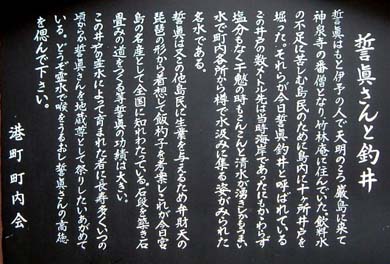 誓眞さんと釣井
誓眞はもと伊予の人で、天明のころ厳島に来て
神泉寺の番僧となり、竹林庵に住んでいた。飲料水
の不足に苦しむ島民のために島内に十ヶ所井戸を
堀った。それらが今日誓眞釣井と呼ばれている
この井戸の数メートル先は当時海岸であったにもかわらず
塩分もなく干魃の時もこんこんと清水が湧きしかもうまい
水で町内各所から樽で水汲みに集る姿がみられた
名水である。
誓眞は又この他島民に生業を与えるため弁財天の
琵琶の形から着想して飯杓子を考案しこれが今日宮
島の名産として全国に知れわたっている。石段を築き石
畳みの道をつくる等誓眞の功績は大きい。
この井戸の霊水によって育まれた者に長寿多くいつの
頃からか誓眞さんを地蔵尊として祭りしたいあがめて
いる。どうぞ霊水で喉をうるおし誓眞さんの高徳
を偲んで下さい。
港町町内会